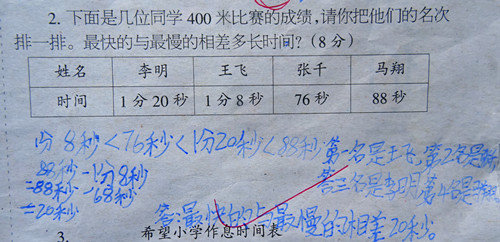 2. 下面是几位同学 400 米比赛的成绩,请你把他们的名次
排一排。最快的与最慢的相差多长时间?(8 分)
姓名 李明 王飞 张千 马翔
时间 1 分 20 秒 1 分 8 秒 76 秒 88 秒
1分 8秒<76秒<1分20秒<88秒 第一名是王飞,第2名是
88秒-1分8秒 第三名是李明,第4名是
=88秒-68秒
=20秒 答:最快的与最慢的相差20秒。
3. 希望小学作息时间表